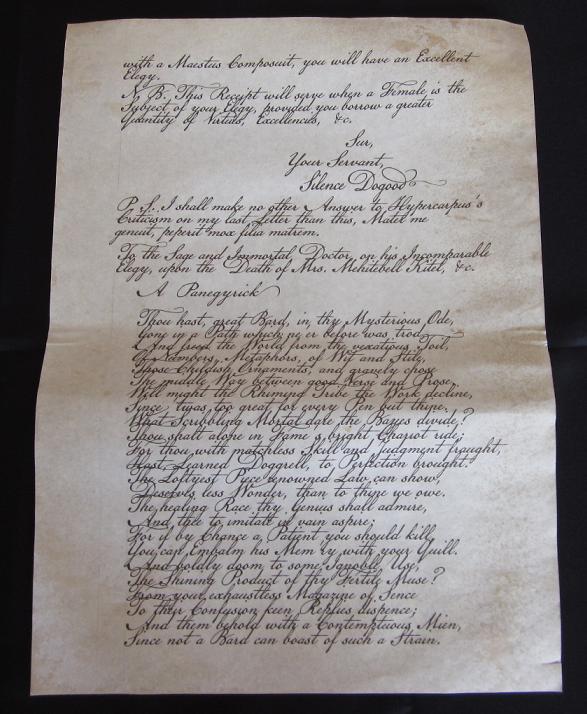 with a Maestus Composuit, you will have an Excellent
Elegy.
N. B. This Receipt will serve when a Female is the
Subject of your Elegy, provided you borrow a greater
Quantity of Virtues, Excellencies, &c.
Sir,
Your Servant,
Silence Dogood
P. S. I shall make no other Answer to Hypercarpus's
Criticism on my last Letter than this, Mater me
genuit, peperit mox filia matrem.
To the Sage and Immortal Doctor, on his Incomparable
Elegy, upon the Death of Mrs. Mehitebell Kitel, &c.
A Panegyrick
Thou hast, great Bard, in thy Mysterious Ode,
Gone in a Path which ne'er before was trod
And freed the World from the vexatious Toil,
Of Numbers, Metaphors, of Wit and Stile,
Those Childish Ornaments, and gravely chose
The middle Way between good Verse and Prose.
Well might the Rhiming Tribe the Work decline,
Since 'twas too great for every Pen but thine.
What Scribbling Mortal dare the Bayes divide?
Thou shalt alone in Fame's bright Chariot ride;
For thou with matchless Skill and Judgment fraught,
Hast, Learned Doggrell, to Perfection brought.
The Loftyest Piece renowned Law can show,
Deserves less Wonder, than to thine we owe.
The healing Race thy Genius shall admire,
And thee to imitate in vain aspire;
For if by Chance a Patient you should kill,
You can Embalm his Mem'ry with your Quill.
And boldly doom to some Ignoble Use,
The Shining Product of thy Fertile Muse?
From your exhaustless Magazine of Sence
To their Confusion keen Replies dispence;
And them behold with a Contemptuous Mien,
Since not a Bard can boast of such a Strain.